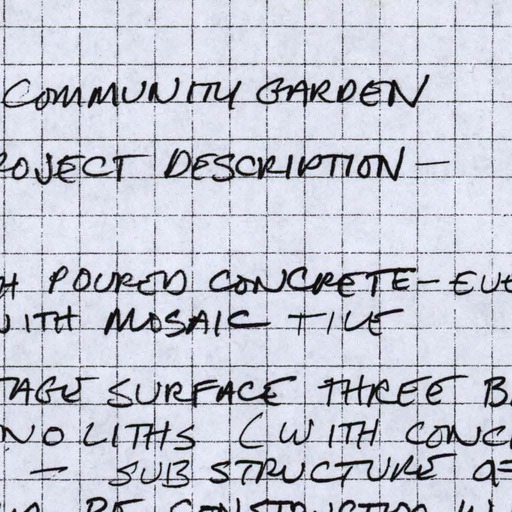 COMMUNITY GARDEN
ROJECT DESCRIPTION —
H POURED CONCRETE — EVE
WITH MOSAIC TILE
TAGE SURFACE THREE B
NOLITHS (WITH CONC
— SUBSTRUCTURE
BE CONSTRUCTION W